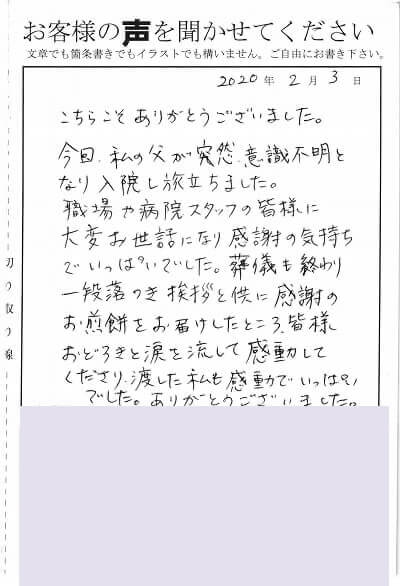 お客様の声を聞かせてください
文章でも箇条書きでもイラストでも構いません。ご自由にお書き下さい。
2020年 2月 3日
こちらこそありがとうございました。
今回、私の父が突然、意識不明と
なり入院し旅立ちました。
職場や病院スタッフの皆様に
大変お世話になり感謝の気持ち
でいっぱいでした。葬儀も終わり
一段落つき挨拶と供に感謝の
お煎餅をお届けしたところ、皆様
おどろきと涙を流して感動して
くださり、渡した私も感動でいっぱい
でした。ありがとうございました。
切り取り線